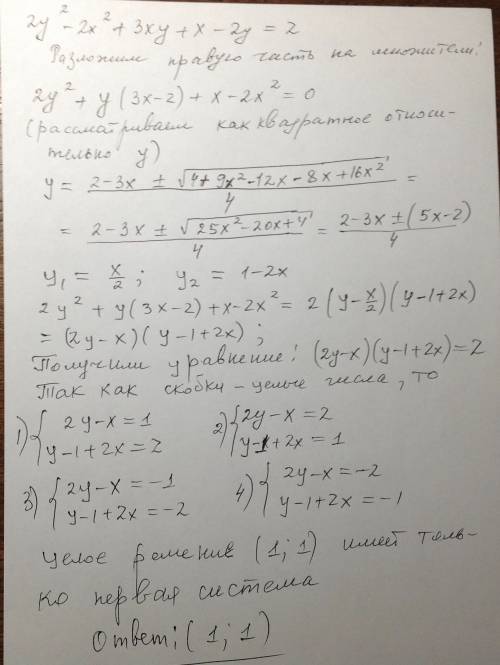 2y² - 2x² + 3xy + x - 2y = 2
Разложим правую часть на множители:
2y² + y(3x-2) + x - 2x² = 0
(рассматриваем как квадратное относи-
тельно y)
y = (2-3x ± √(4+9x²-12x-8x+16x²))/4 =
= (2-3x ± √(25x²-20x+4))/4 = (2-3x±(5x-2))/4
y₁ = x/2; y₂ = 1-2x
2y² + y(3x-2)+x-2x² = 2(y-x/2)(y-1+2x)
= (2y-x)(y-1+2x);
Получили уравнение: (2y-x)(y-1+2x)=2
Так как скобки - целые числа, то
1) { 2y-x=1 2) { 2y-x=2
y-1+2x=2 y-1+2x=1
3) { 2y-x=-1 4) { 2y-x=-2
y-1+2x=-2 y-1+2x=-1
Целое решение (1;1) имеет толь-
ко первая система
Ответ: (1;1)